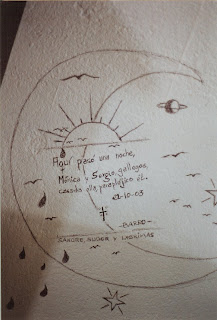 Aquí pasó una noche,
Mónica y Sergio, gallegos,
casado ella parapléjico él.
21-10-03
- BARRO -
SANGRE, SUDOR Y LAGRIMAS